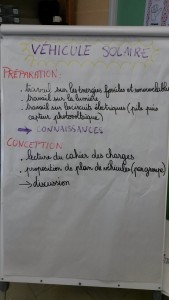 VÉHICULE SOLAIRE
PRÉPARATION:
. travail sur les énergies fossiles et renouvelables
. travail sur la lumière
. travail sur les circuits électriques (pile puis
capteur photovoltaïque)
→ CONNAISSANCES
CONCEPTION
. lecture du cahier des charges
. proposition de plan de véhicules (par groupe)
→ discussion